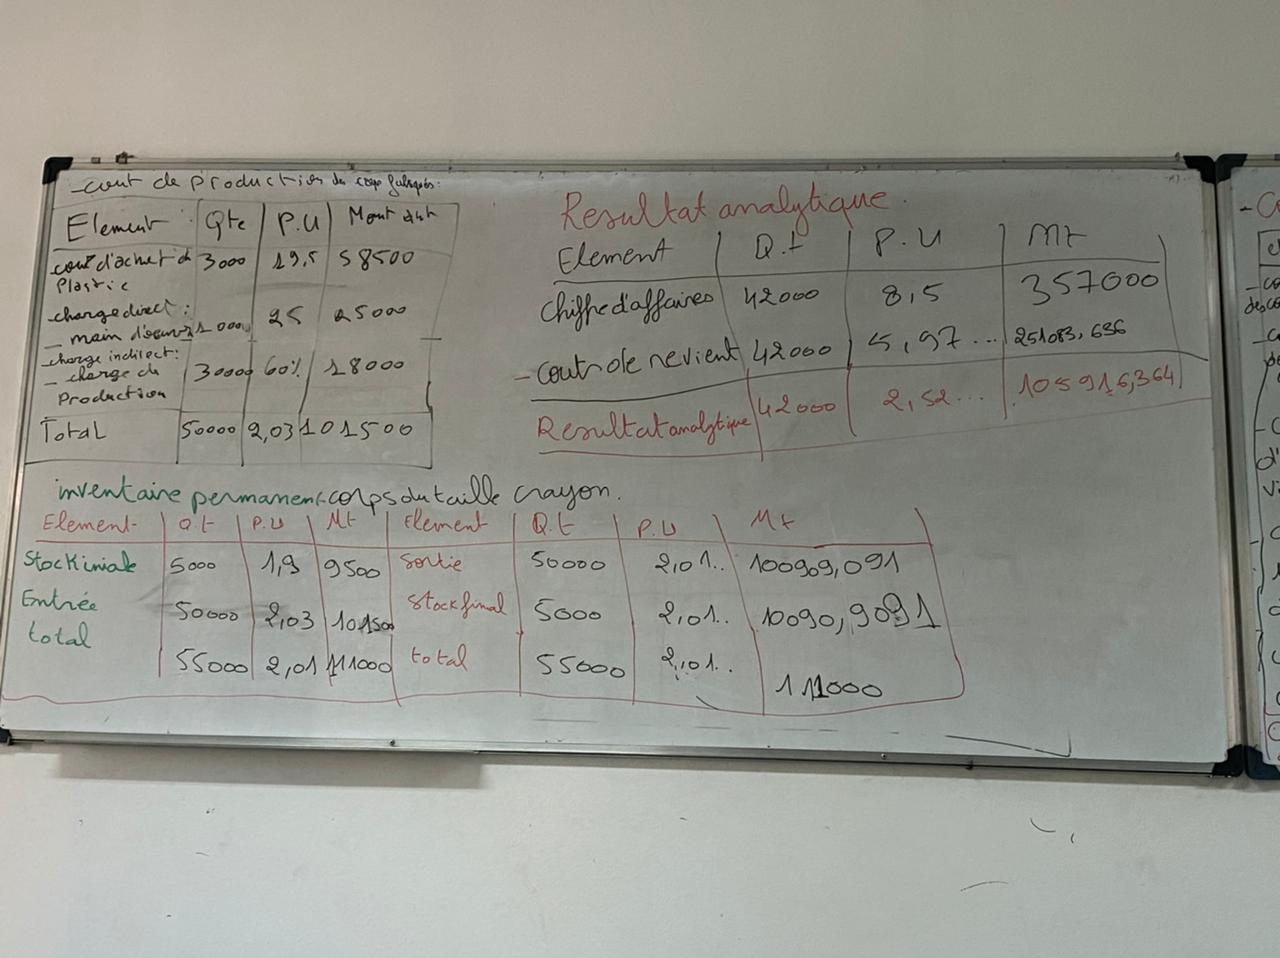 - cout de production du corps fabriqués:
Element Qte P.U Montant
cout d'achat de Plastic 3000 19,5 58500
charge direct:
- main d'oeuvre 1000 25 25000
charge indirect:
- charge de Production 30000 60% 18000
Total 50000 2,03 101500
Resultat analytique.
Element Q.t P.U Mt
Chiffre d'affaires 42000 8,5 357000
- cout de revient 42000 5,97... 251083,636
Resultat analytique 42000 2,52... 105916,364
inventaire permanent corps du taille crayon.
Element Q.t P.U Mt Element Q.t P.U Mt
Stock iniale 5000 1,9 9500 sortie 50000 2,01.. 100909,091
Entrée 50000 2,03 101500 stock final 5000 2,01.. 10090,9091
total 55000 2,01 111000 total 55000 2,01.. 111000